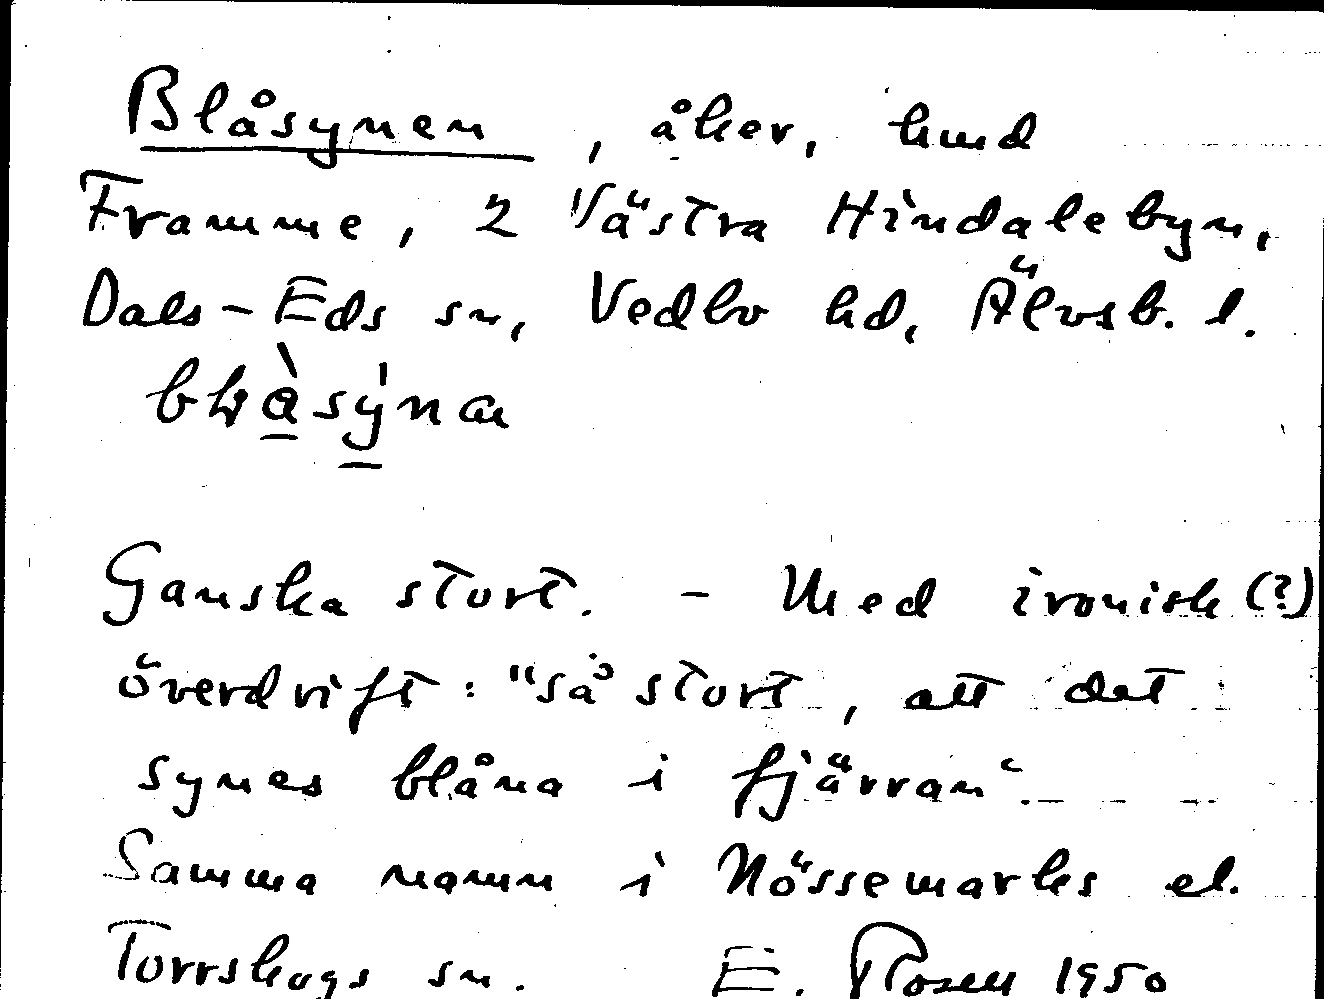 Blåsynen, åker, hmd
Framme, 2 Västra Hindalebyn,
Dals-Eds sn, Vedbo hd, Älvsb. l.
Ganska stort. - Med ironisk (?)
överdrift: "så stort, att det
synes blåna i fjärran".
Samma namn i Nössemarks el.
Torrskogs sn. E. Rosell 1950